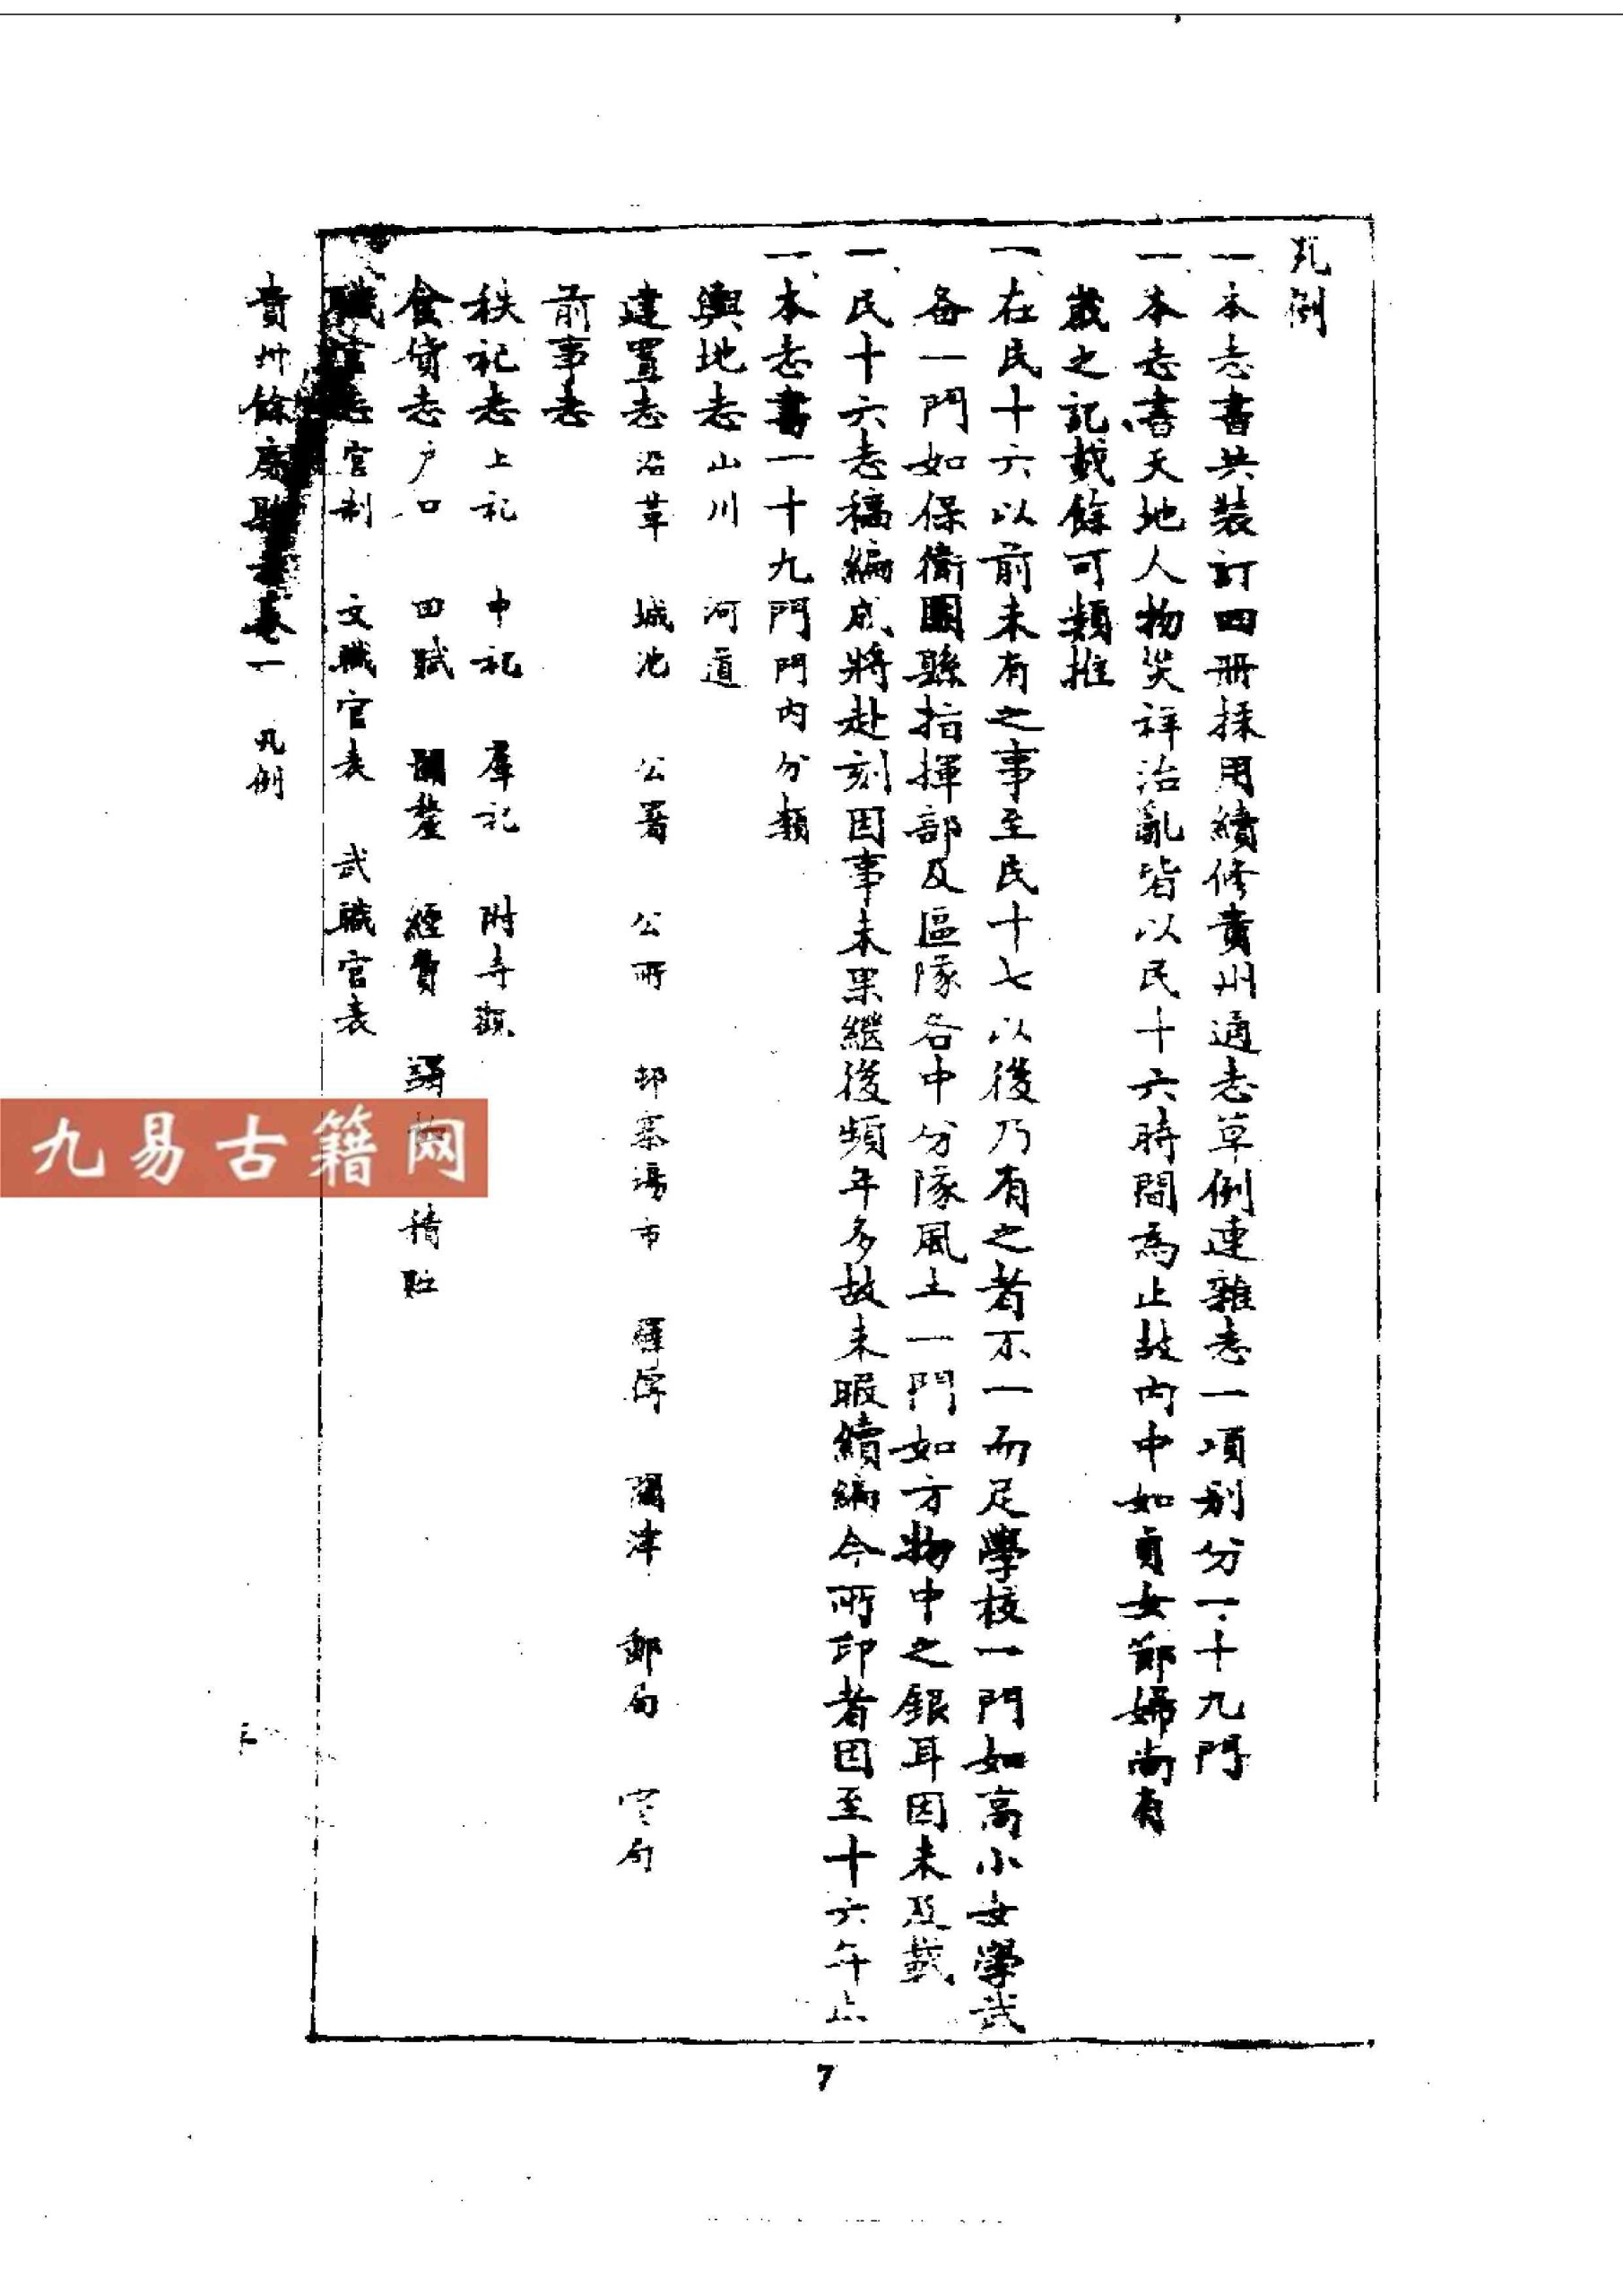 凡例
一、本志書共裝訂四冊採用續修貴州通志草例連雜志一項別分一十九門
一、本志書天地人物災祥治亂皆以民十六時間為止故內中如貞女節婦尚有
歲之記載餘可類推
一、在民十六以前未有之事至民十七以後乃有之者不一而足學校一門如高小女學武
備一門如保衛團縣指揮部及區隊各中分隊風土一門如方物中之銀耳因未及載
一、民十六志稿編成將赴刻因事未果繼後頻年多故未暇續編今所印者因至十六年止
一、本志書一十九門門內分類
輿地志 山川 河道
建置志 沿革 城池 公署 公所 邨寨場市 津 郵局
前事志
秩祀志 上祀 中祀 羣祀 附寺觀
食貨志 戶口 田賦 經費 積貯
職官志 官制 文職官表 武職官表
貴州餘慶縣志卷一 凡例
7
九易古籍网